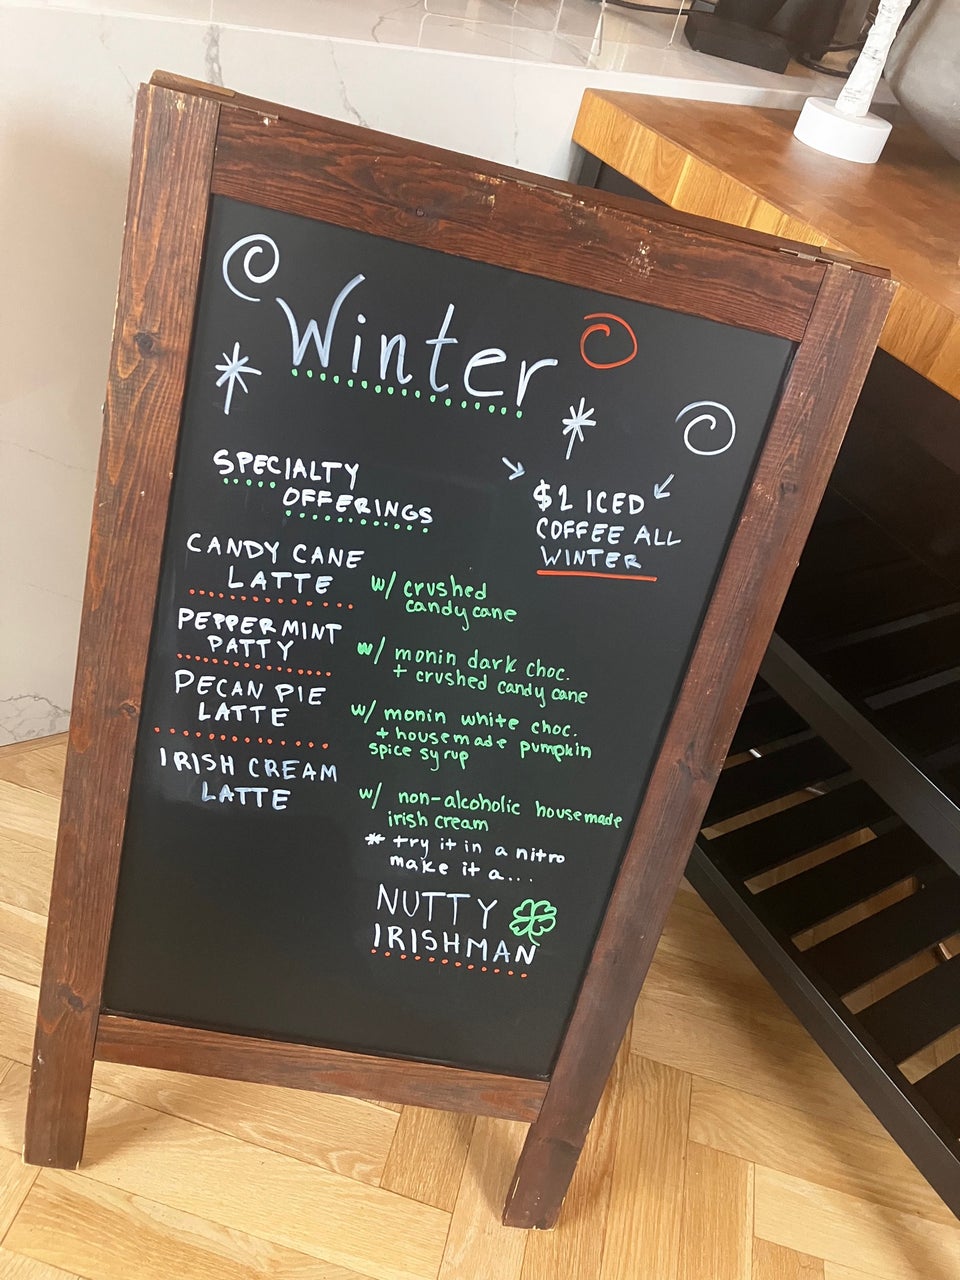 Winter
SPECIALTY
OFFERINGS
$2 ICED
COFFEE ALL
WINTER
CANDY CANE
LATTE
w/ crushed
candy cane
PEPPERMINT
PATTY
w/ monin dark choc.
+ crushed candy cane
PECAN PIE
LATTE
w/ monin white choc.
+ housemade pumpkin
spice syrup
IRISH CREAM
LATTE
w/ non-alcoholic housemade
irish cream
* try it in a nitro
make it a...
NUTTY
IRISHMAN